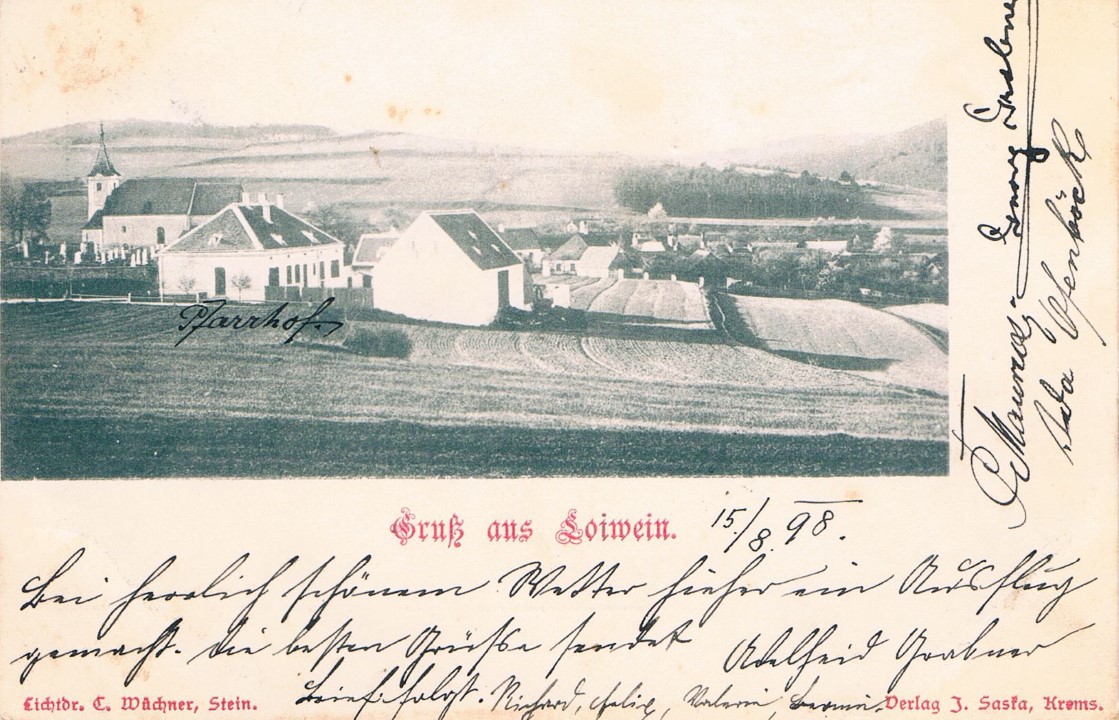 Pfarrhof.
Gruß aus Loiwein. 15/8. 98.
Bei herrlich schönem Wetter hieher ein Ausflug
gemacht. Die besten Grüsse sendet Adelheid Grabner
Brief folgt. Richard, Felix, Valerie,
Lichtdr. C. Wächner, Stein.
Verlag J. Saska, Krems.
P. Maurus Georg Grabner
Ida Ofenböck